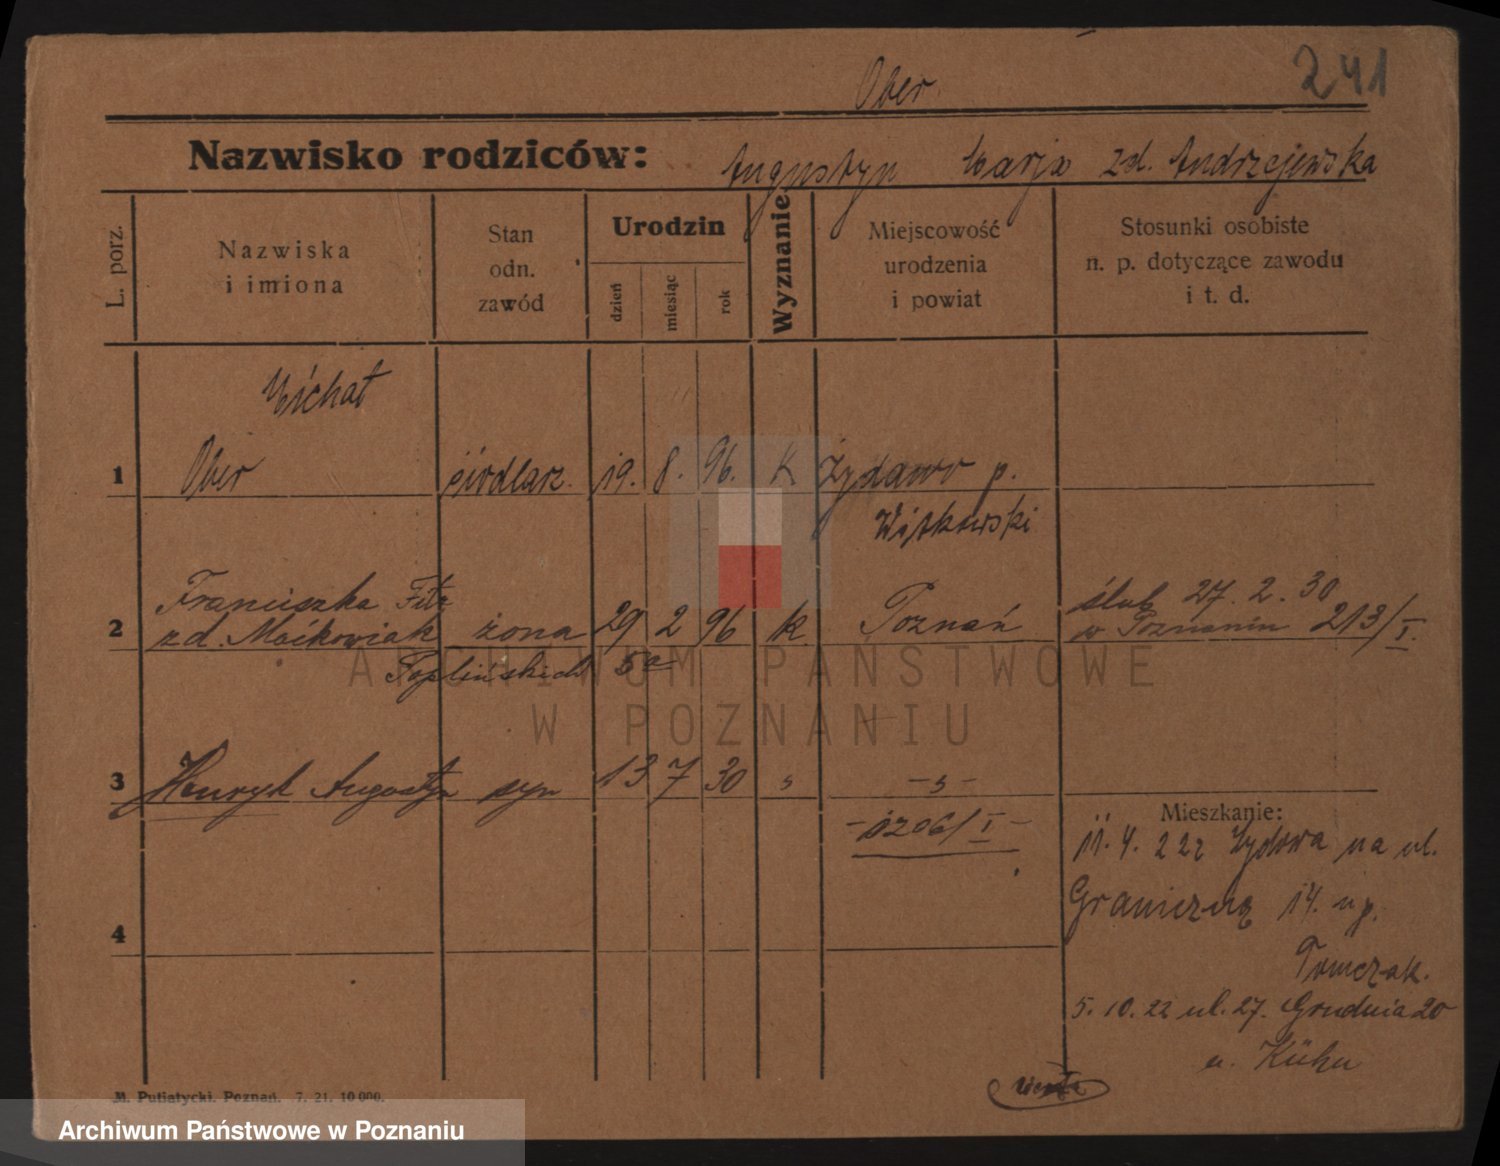 241
Ober
Nazwisko rodziców: Augustyn Marja zd. Andrzejewska
L. porz.
Nazwiska i imiona
Stan odn. zawód
Urodzin
dzień
miesiąc
rok
Wyznanie
Miejscowość urodzenia i powiat
Stosunki osobiste n. p. dotyczące zawodu i t. d.
Michał
1 Ober siodlarz. 19. 8. 96. K Żydowo p.
Witkowski
Franciszka
2 zd. Maćkowiak żona 29 2 96 k Poznań
ślub 27. 2. 30
w Poznaniu 213/I.
3 Henryk Augustyn syn 13 7 30
1206/I
Mieszkanie:
11. 4. 22 z Żydowa na ul.
Graniczną 14. u p.
Tomczak.
4
5. 10. 22 ul. 27. Grudnia 20
u. Kühn
M. Putiatycki. Poznań. 7. 21. 10 000.
ARCHIWUM PAŃSTWOWE
W POZNANIU
Archiwum Państwowe w Poznaniu